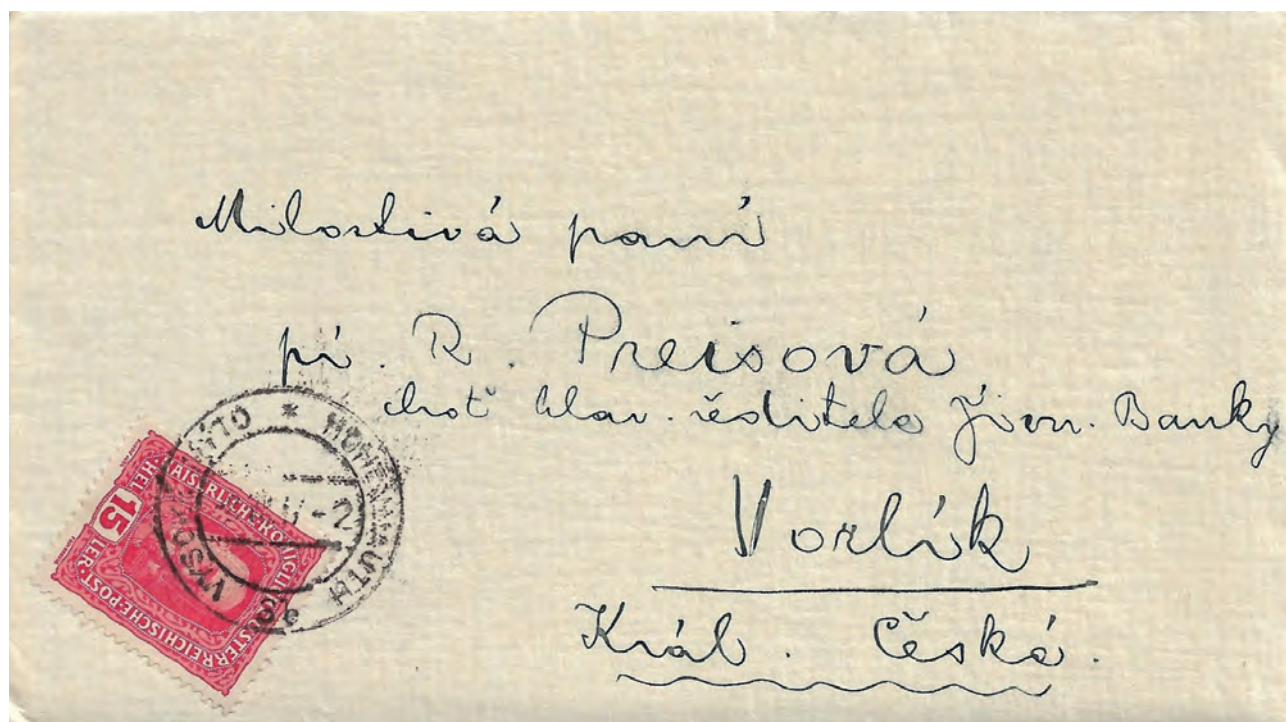 Milostivá paní
pí. R. Preisová
choť hlav. ředitele Živn. Banky
Vorlík
Král. Česká.
HOHENMAUTH * VYSOKÉ MÝTO
KAISERLICHE KÖNIGLICHE
ÖSTERREICHISCHE POST
15 HELLER